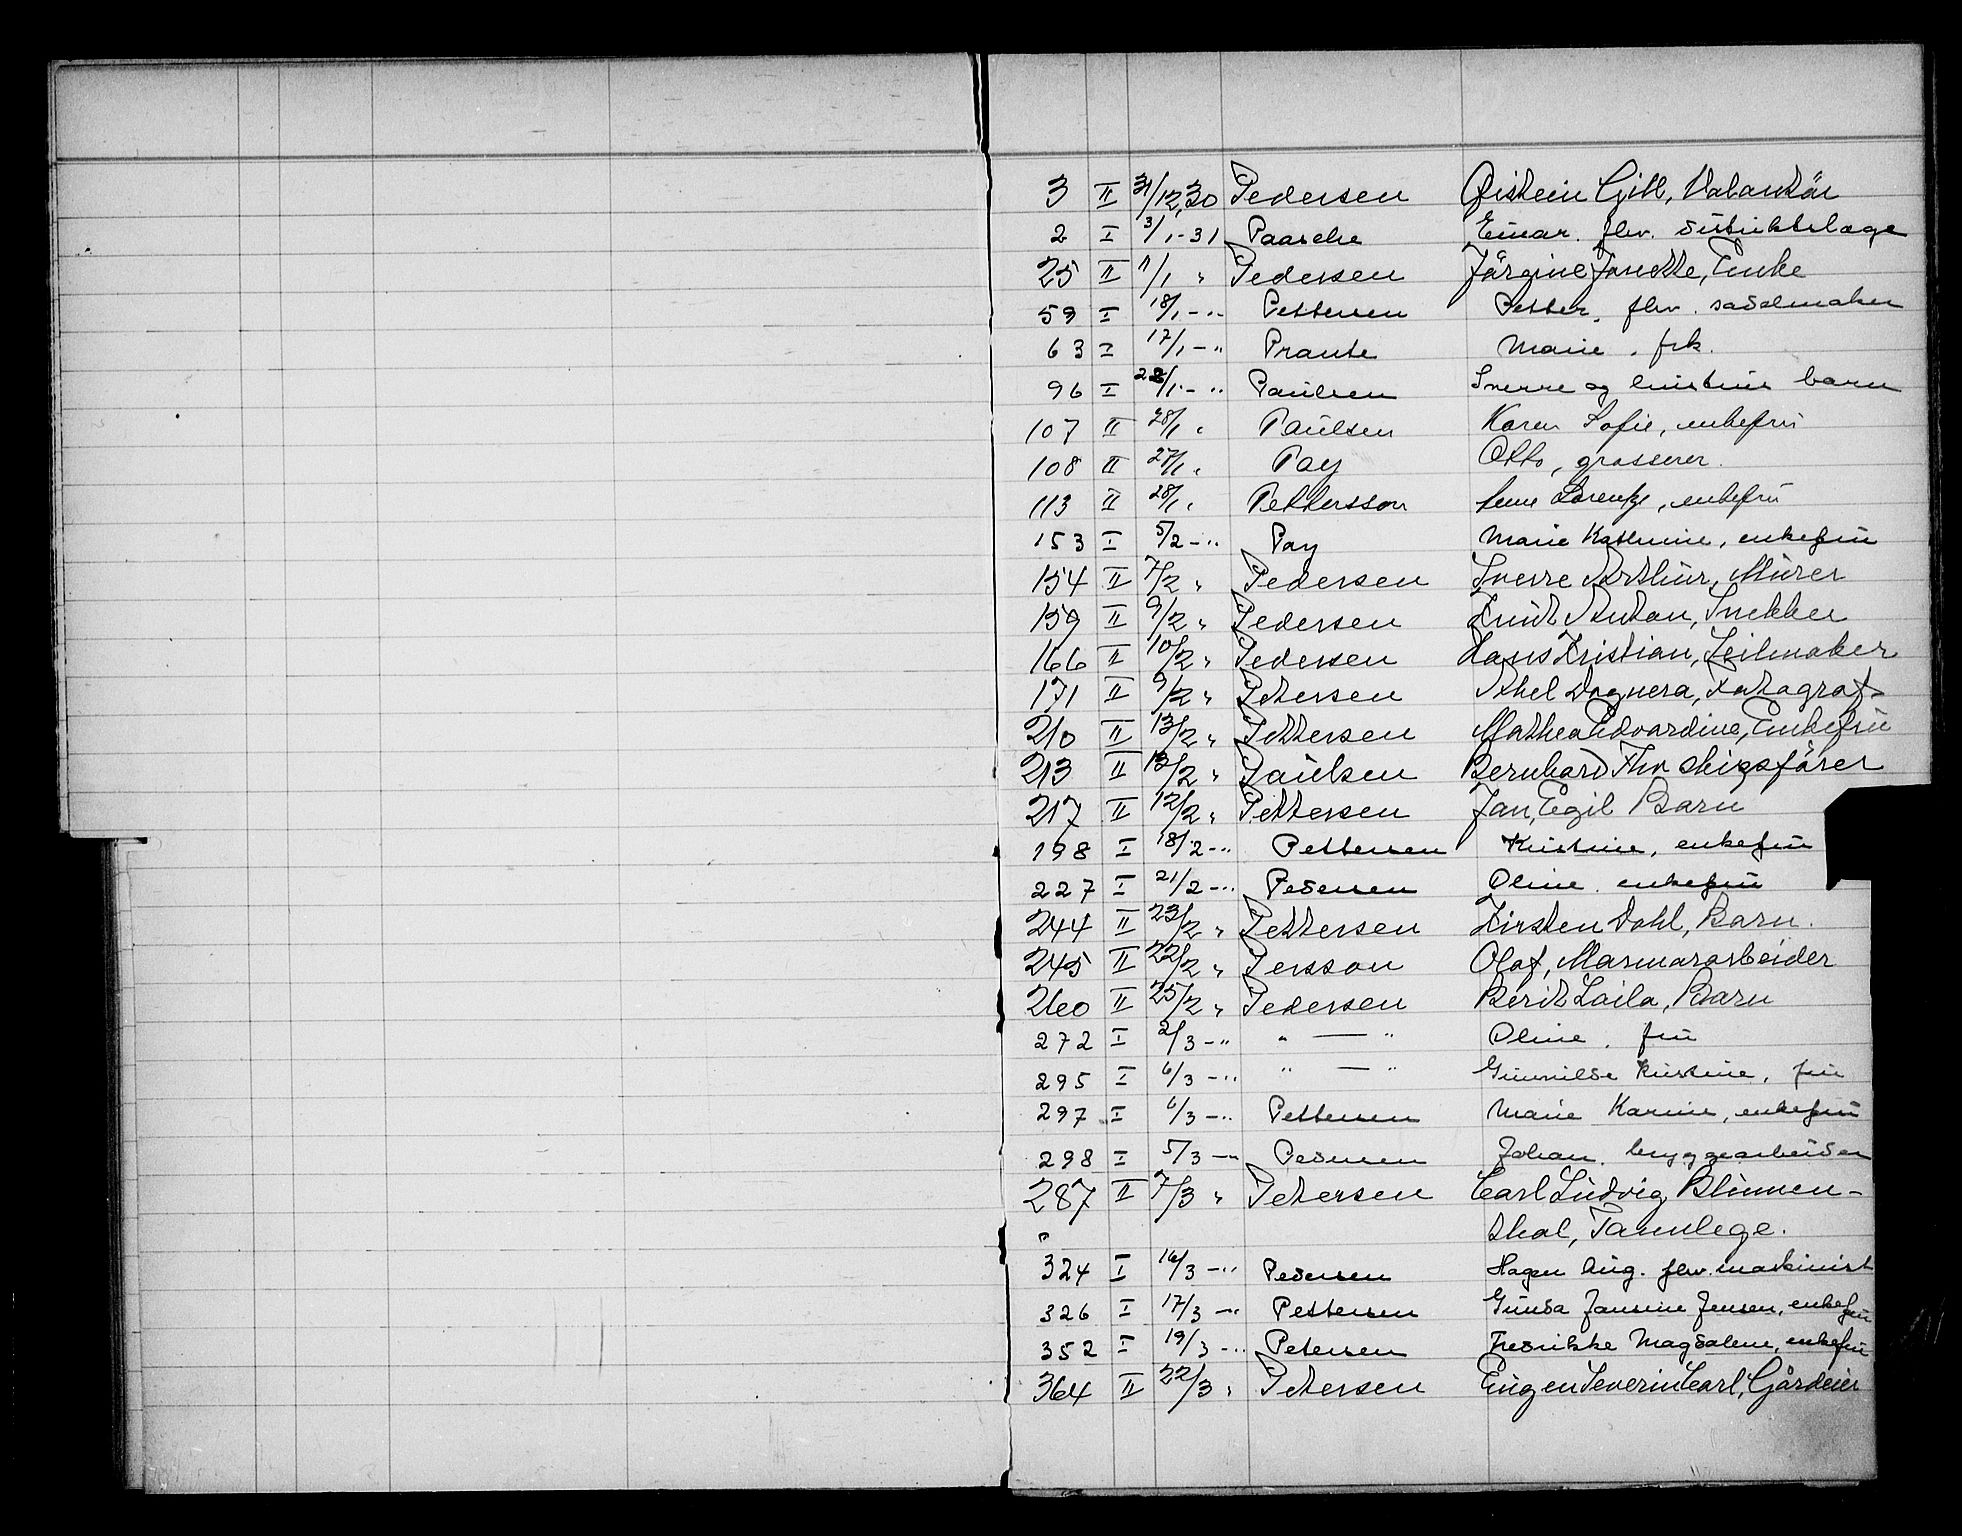 3 II 31/12,30 Pedersen Øistein Gill, Volontör
2 I 3/1-31 Paasche Einar. fhv. distriktslæge
25 II 11/1 " Pedersen Jörgine Janette, Enke
59 I 18/1-" Pettersen Petter, fhv. sadelmaker
63 I 17/1-" Prante Marie, frk.
96 I 22/1-" Paulsen Sverre og barn
107 II 28/1 " Paulsen Karen Sofie, enkefru
108 II 27/1 " Pay Otto, grosserer.
113 II 28/1 " Pettersson Lorentze, enkefru
153 I 5/2-" Pay Marie Kathrine, enkefru
154 II 7/2 " Pedersen Sverre Arthur, Murer
159 II 9/2 " Pedersen Knut Anton, Snekker
166 II 10/2 " Pedersen Hans Kristian, Seilmaker
171 II 9/2 " Petersen Thel Dagnera, Fotograf
210 II 13/2 " Pettersen Mathea Edvardine, Enkefru
213 II 13/2 " Paulsen Bernhard Fhv skipsförer
217 II 12/2 " Pettersen Jan, Egil Barn
198 I 18/2-" Pettersen Kristine, enkefru
227 I 21/2-" Pedersen Oline. enkefru
244 II 23/2 " Pettersen Kirsten Dahl, Barn.
245 II 22/2 " Persson Olof, Marmorarbeider
260 II 25/2 " Pedersen Berit Laila, Barn
272 I 2/3-" " — " Oline. fru
295 I 6/3-" " — " Gunnilde Kristine, fru
297 I 6/3-" Pettersen Marie Karine, enkefru
298 I 5/3-" Pedersen Johan. bryggearbeider
287 II 7/3 " Petersen Carl Ludvig Blumen-
thal, Tannlege.
324 I 16/3-" Pedersen Hagen Aug. fhv. maskinist
326 I 17/3-" Pettersen Gunda Jansine Jensen, enkefru
352 I 19/3-" Petersen Fredrikke Magdalene, enkefru
364 II 22/3 " Petersen Eugen Severin Carl, Gårdeier